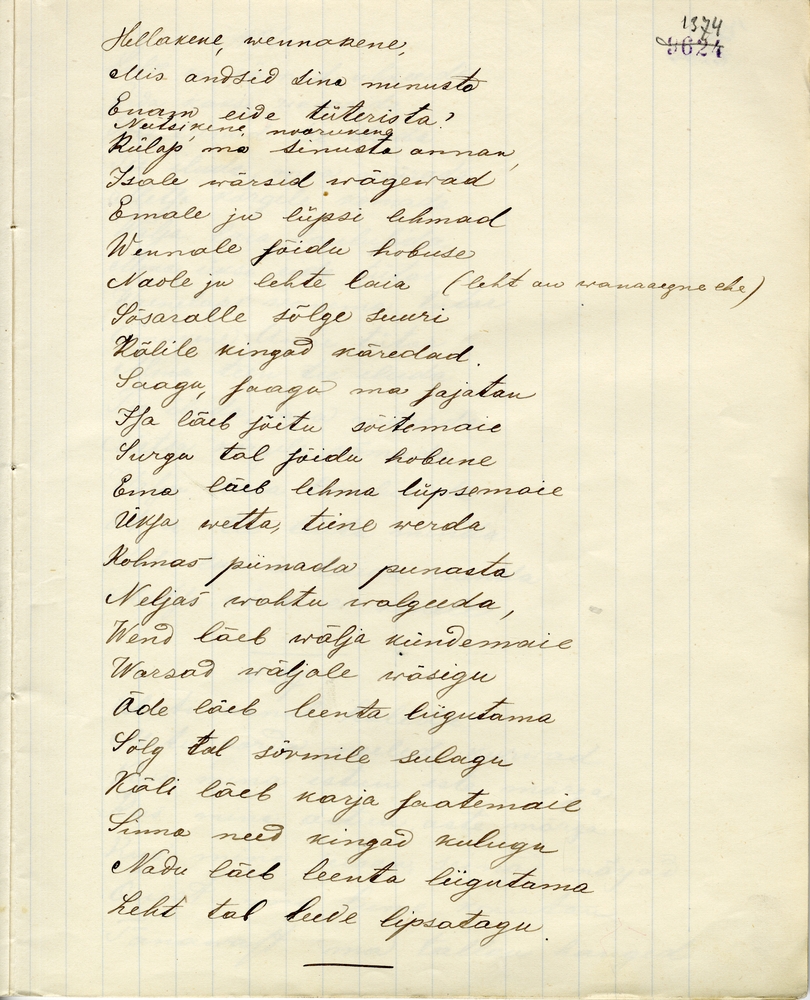 1374
9624
Hellakene, wennakene,
Mis andsid sina minusta
Enam eide tüterista?
Neitsikene, noorukene
Külap ma sinusta annan,
Isale wärsid wägewad
Emale ju lüpsi lehmad
Wennale sõidu hobuse
Naole ju lehte laia (leht on wanaaegne ehe)
Sõsaralle sõlge suuri
Kälile kingad käredad.
Saagu, saagu ma sajatan
Isa läeb sõitu sõitemaie
Surgu tal sõidu hobune
Ema läeb lehma lüpsemaie
Üksa wetta, teine werda
Kolmas piimada punasta
Neljas wahtu walgeeda,
Wend läeb wälja kündemaie
Warsad wäljale wäsigu
Õde läeb leenta liigutama
Sõlg tal sõrmile sulagu
Käli läeb karja saatemaie
Sinna need kingad kulugu
Nadu läeb leenta liigutama
Leht tal leede lipsatagu.